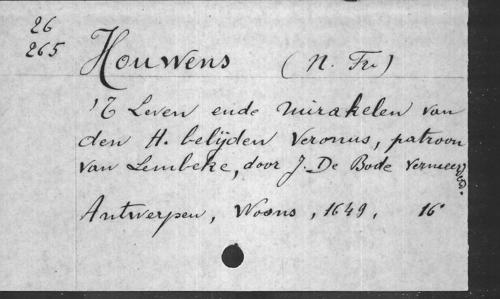 26
265
Houwens (N. Fr.)
'T Leven ende mirakelen van
den H. belijden Veronus, patroon
van Lembeke, door J. De Bode vermeerderd.
Antwerpen, Woons, 1649, 16°